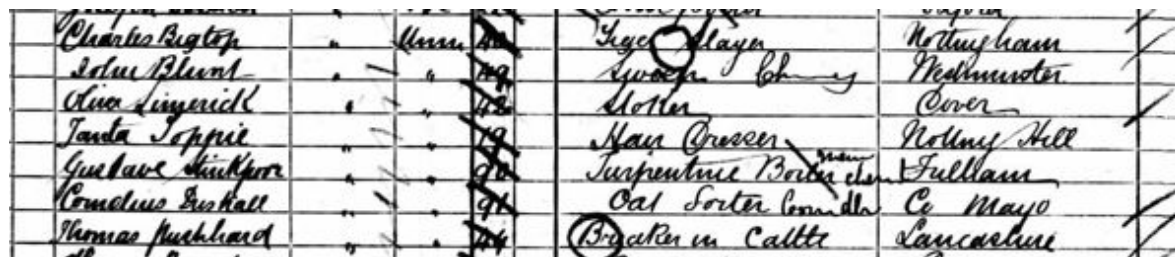 Charles Bigtop " Unm 40 Tiger Slayer Nottingham
John Blunt " " 49 Sweep Chimney Westminster
Oliver Limerick " " 48 Stoker Dover
Tanta Toppie " " 49 Hair Dresser Notting Hill
Gustave Stinkpoor " " 90 Turpentine Boiler Fulham
Cornelius Duskall " " 91 Oat Sorter Co Mayo
Thomas Pushhard " " 44 Breaker in Cattle Lancashire